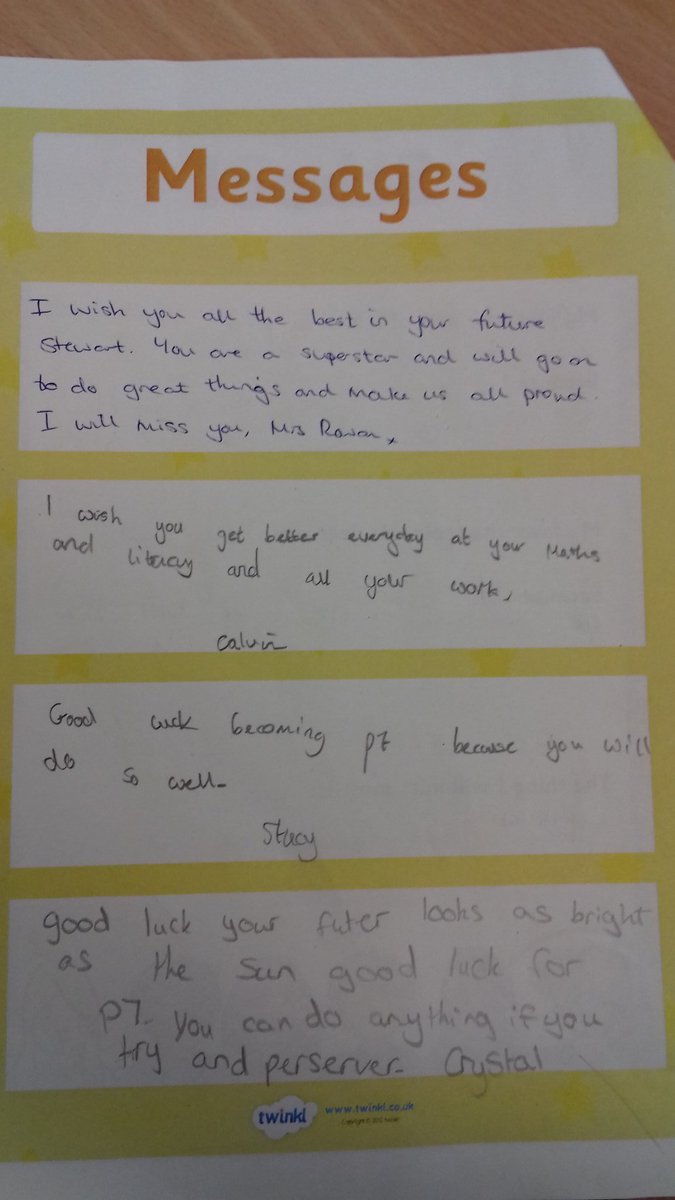 Messages
I wish you all the best in your future
Stewart. You are a superstar and will go on
to do great things and make us all proud.
I will miss you, Mrs Rowan x
I wish you get better everyday at your Maths
and literacy and all your work,
Calvin
Good luck becoming p7 because you will
do so well-
Stacy
good luck your futer looks as bright
as the sun good luck for
P7. You can do anything if you
try and perserver- Crystal
twinkl www.twinkl.co.uk